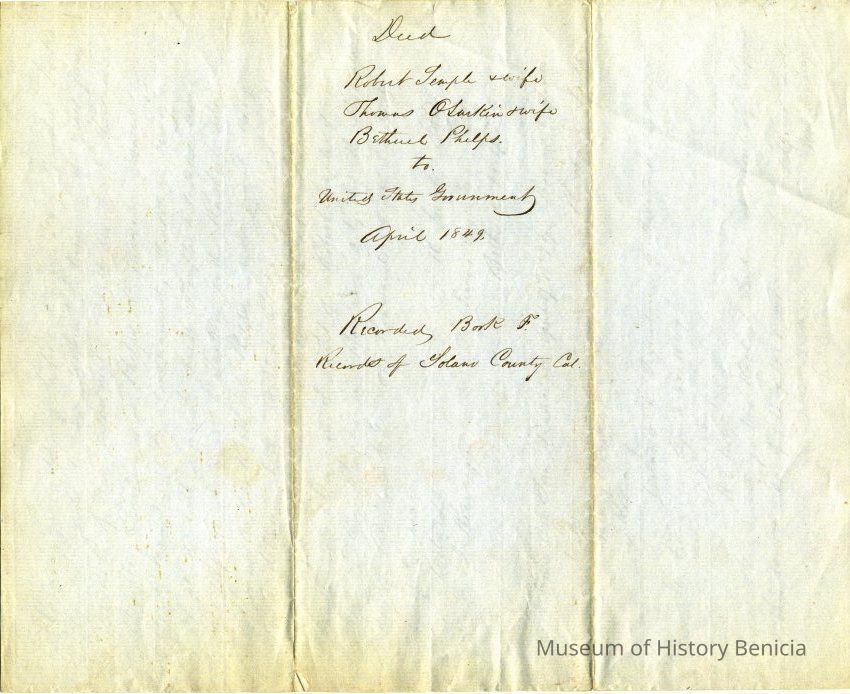 Deed
Robert Semple & wife
Thomas O Larkin & wife
Bethuel Phelps.
to.
United States Government
April 1849.
Recorded, Book F.
Records of Solano County Cal.
Museum of History Benicia